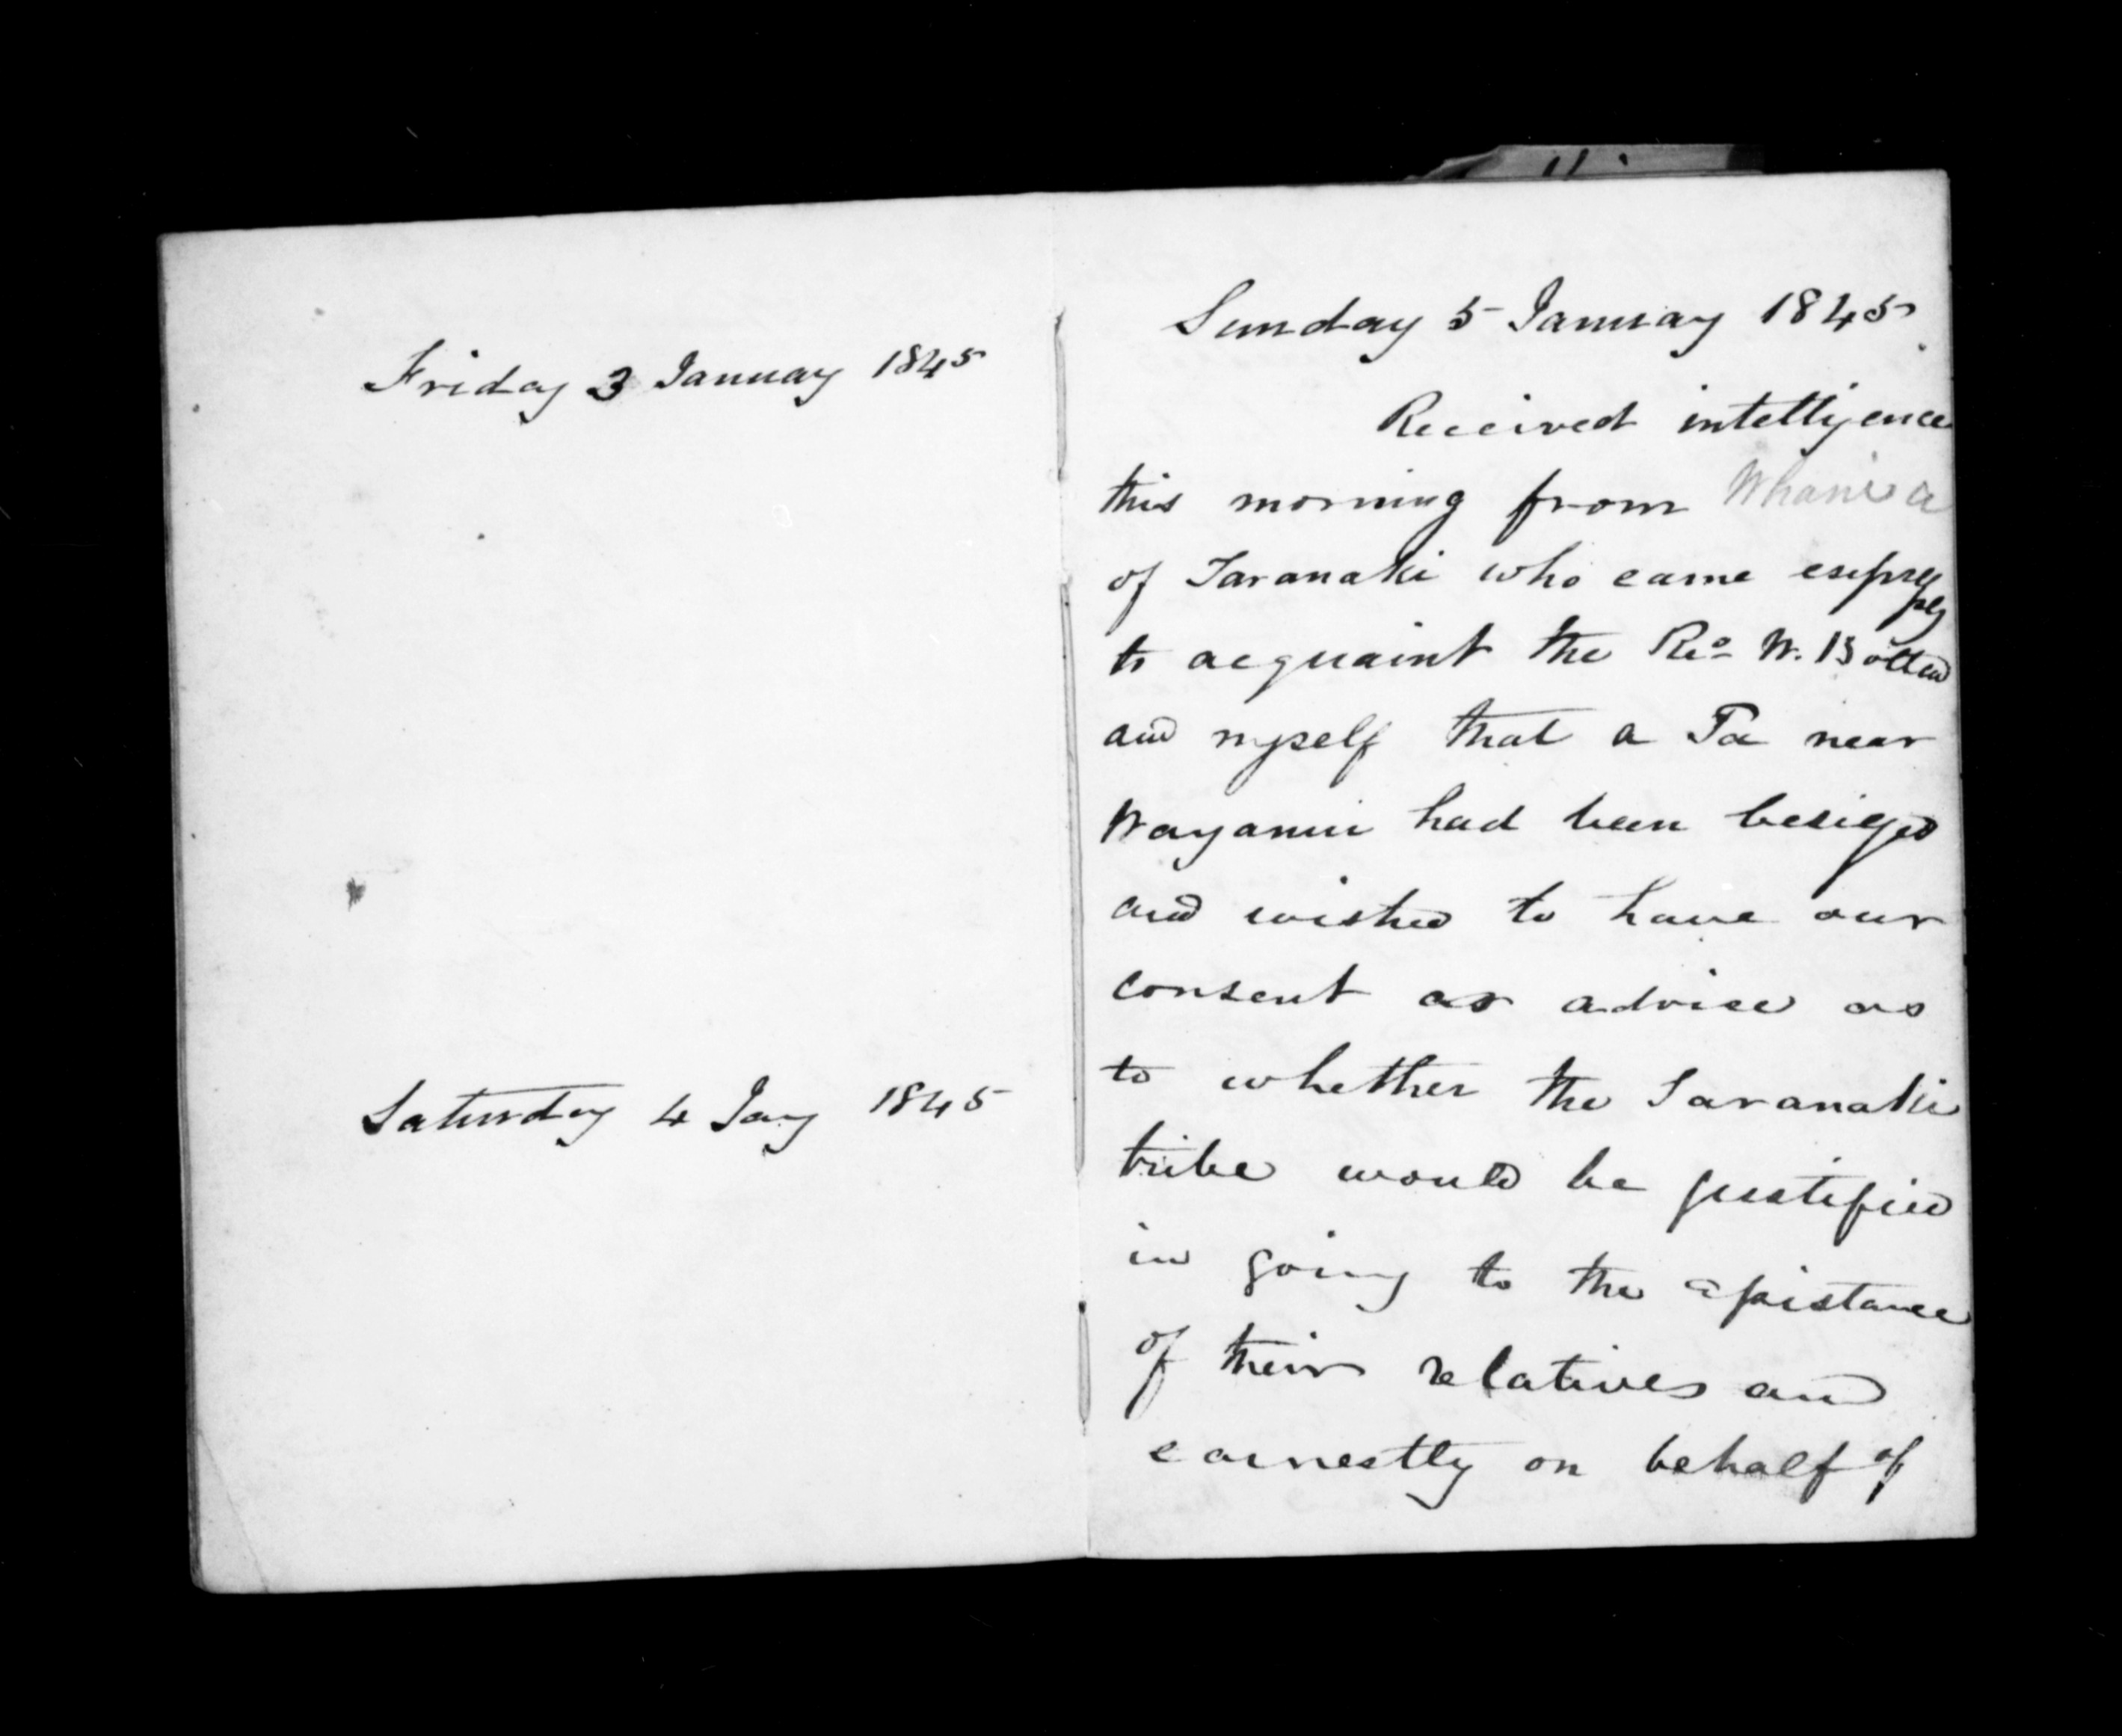 Friday 3 January 1845
Saturday 4 Jany 1845
Sunday 5 January 1845
Received intelligence
this morning from
of Taranaki who came expressly
to acquaint the Revd W. Bolland
and myself that a Pa near
Waganui had been besieged
and wished to have our
consent or advice as
to whether the Taranaki
tribe would be justified
in going to the assistance
of their relatives and
earnestly on behalf of